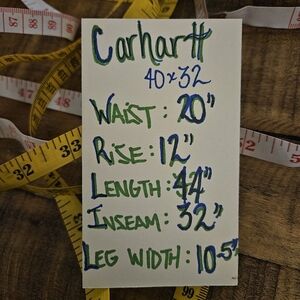 Carhartt
40x32
WAIST: 20"
RISE: 12"
LENGTH: 44"
INSEAM: 32"
LEG WIDTH: 10.5"